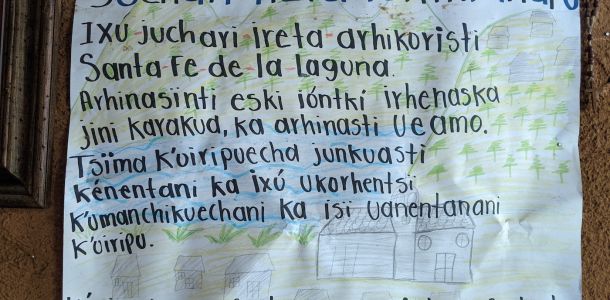 Ixú juchari ireta arhikoristi
Santa Fe de la Laguna.
Arhinasïnti eski ióntki irhenaska
jini karakua, ka arhinasti Ueamo.
Tsïma k'uiripuecha junkuasti
kénentani ka ixú ukorhentsi
k'umanchikuechani ka isi uanentanani
k'uiripu.